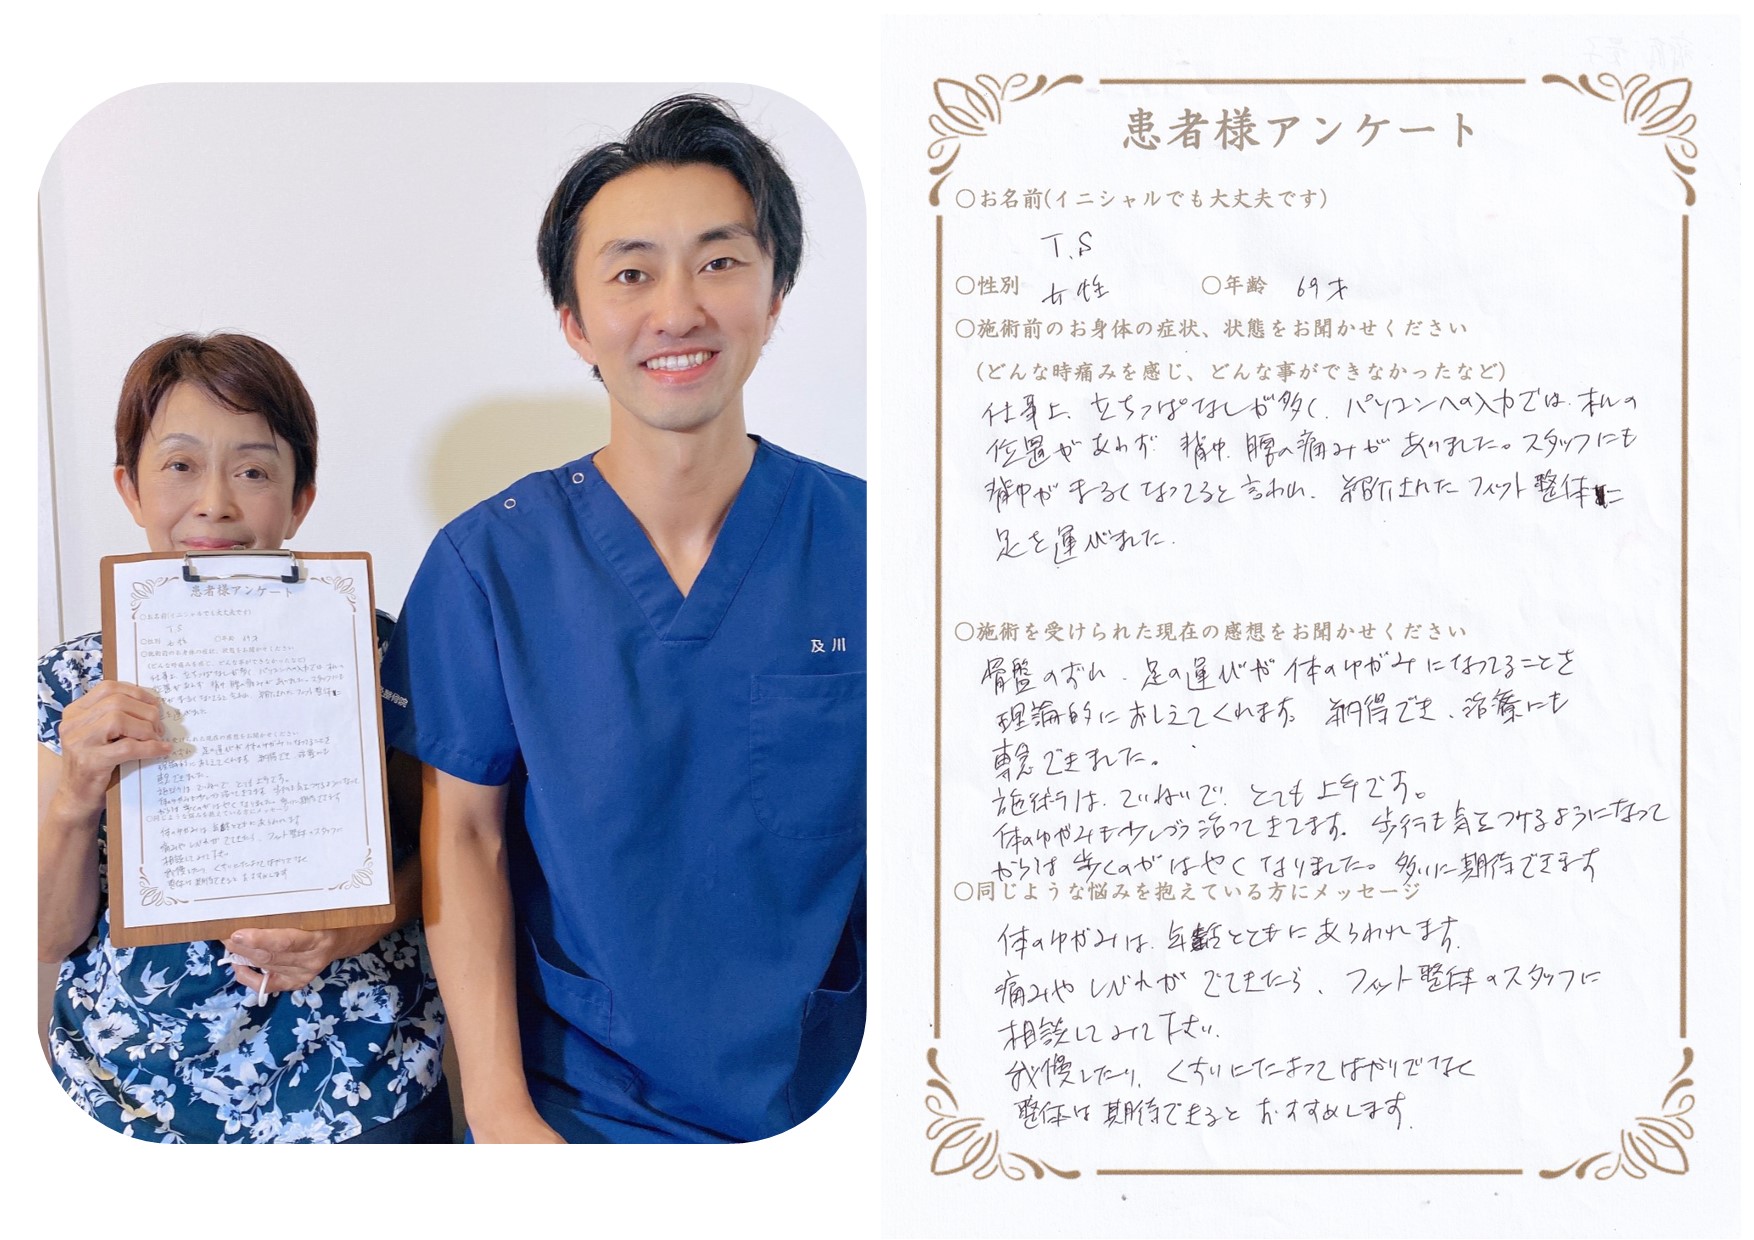 患者様アンケート
〇お名前(イニシャルでも大丈夫です)
T.S
〇性別 女性 〇年齢 69才
〇施術前のお身体の症状、状態をお聞かせください
(どんな時痛みを感じ、どんな事ができなかったなど)
仕事上、立ちっぱなしが多く、パソコンへの入力では、机の
位置があわず 背中、腰の痛みがありました。スタッフにも
背中がまるくなってると言われ、紹介されたフィット整体に
足を運びました。
〇施術を受けられた現在の感想をお聞かせください
骨盤のずれ、足の運びが体のゆがみになってることを
理論的におしえてくれます。納得でき、治療にも
専念できました。
施術は、ていねいで、とても上手です。
体のゆがみも少しづつ治ってきてます。歩行も気をつけるようになって
からは歩くのがはやくなりました。多いに期待できます
〇同じような悩みを抱えている方にメッセージ
体のゆがみは、年齢とともにあらわれます。
痛みやしびれがでてきたら、フィット整体のスタッフに
相談してみて下さい。
我慢したり、くすりにたよってばかりでなく
整体は期待できるとおすすめします。
及川